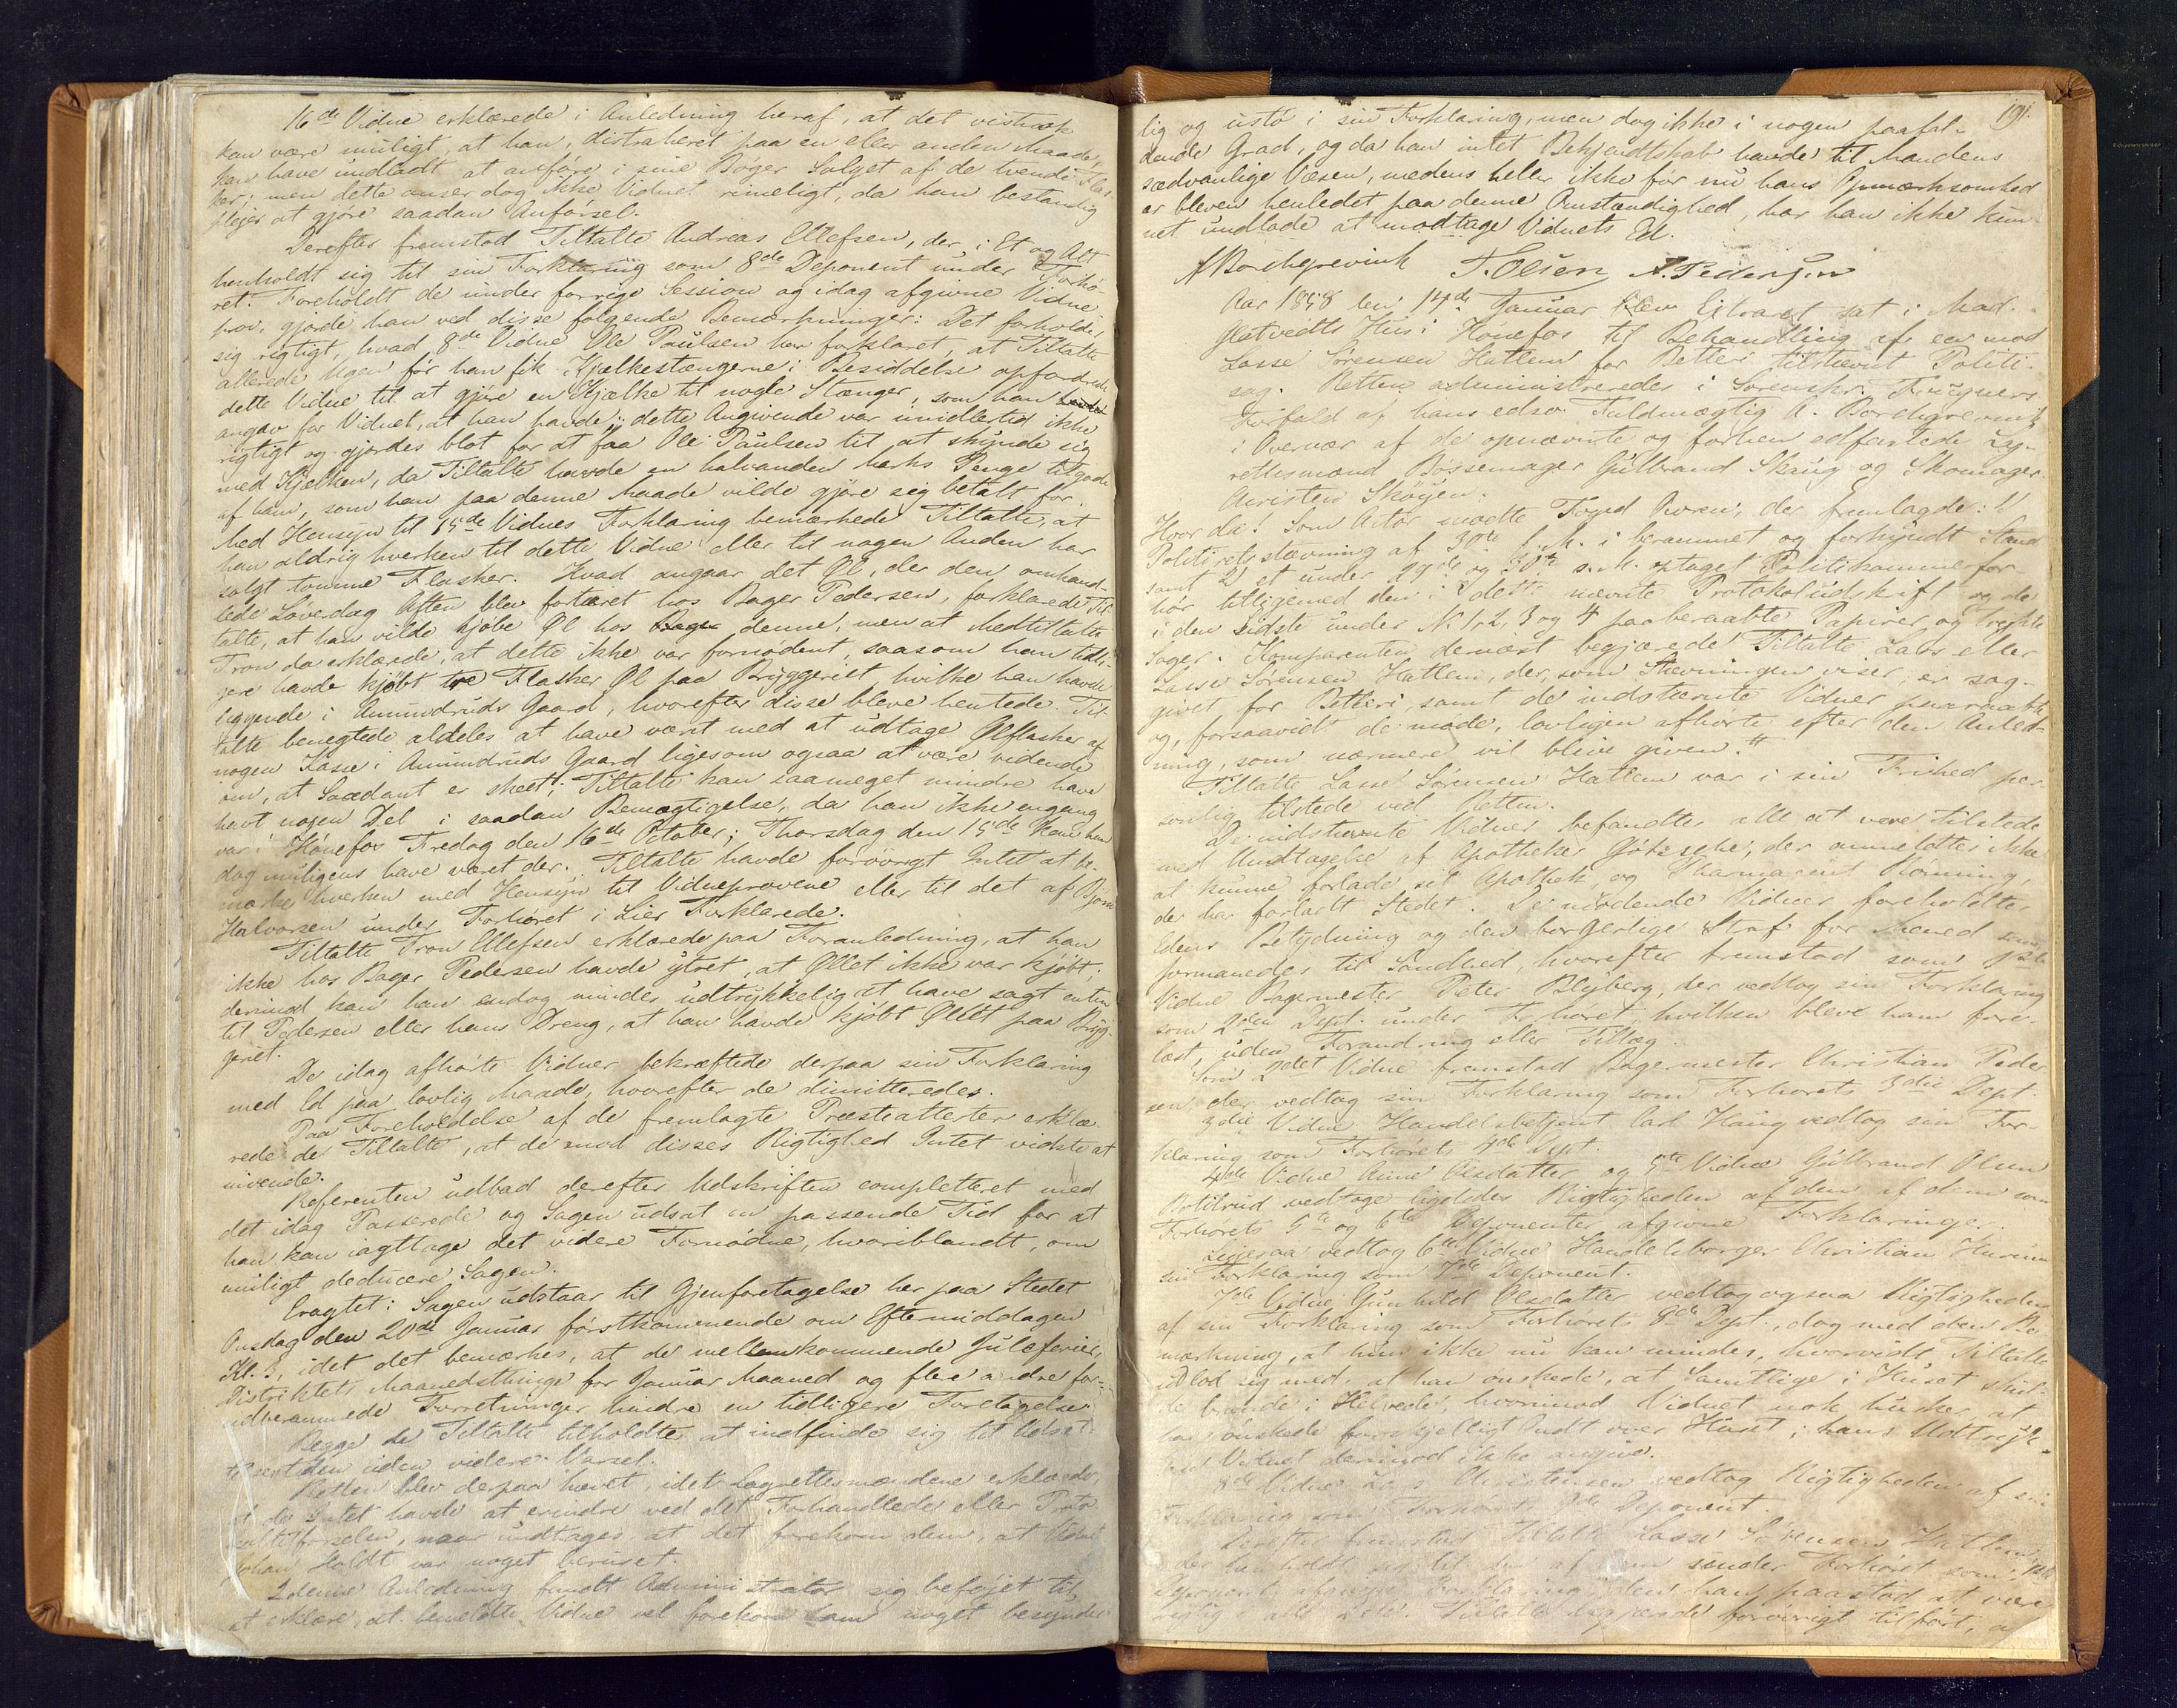 16de Vidne erklærede i Anledning heraf, at det vistnok
kan være muligt, at han, distraheret paa en eller anden Maade,
kan have undladt at anføre i sine Bøger Salget af de tvende Flas-
ker; men dette anser dog ikke Vidnet rimeligt, da han bestandig
plejer at gjøre saadan Anførsel.
Derefter fremstod Tiltalte Andreas Ellefsen, der i Et og Alt
henholdt sig til sin Forklaring som 8de Deponent under Forhø-
ret. Foreholdt de under forrige Session og idag afgivne Vidne-
prov, gjorde han ved disse følgende Bemærkninger: Det forholder
sig rigtigt, hvad 8de Vidne Ole Paulsen har forklaret, at Tiltalte
allerede Ugen før han fik Kjælkestængerne i Besiddelse opfordrede
dette Vidne til at gjøre en Kjælke til nogle Stænger, som han
angav for Vidnet, at han havde; dette Angivende var imidlertid ikke
rigtigt og gjordes blot for at faa Ole Paulsen til at skynde sig
med Kjælken, da Tiltalte havde en halvanden Marks Penge tilgode
af ham, som han paa denne Maade vilde gjøre sig betalt for.
Med Hensyn til 15de Vidnes Forklaring bemærkede Tiltalte, at
han aldrig hverken til dette Vidne eller til nogen Anden har
solgt tomme Flasker. Hvad angaar det Øl, der den omhand-
lede Løverdag Aften blev fortæret hos Bager Pedersen, forklarede Til-
talte, at han vilde kjøbe Øl hos denne, men at Medtiltalte
Tron da erklærede, at dette ikke var fornødent, saasom han tidli-
gere havde kjøbt tre Flasker Øl paa Bryggeriet, hvilke han havde
liggende i Amundruds Gaard, hvorefter disse bleve hentede. Til-
talte benegtede aldeles at have været med at udtage Ølflasker af
nogen Kasse i Amundruds Gaard ligesom ogsaa at være vidende
om, at Saadant er skeet; Tiltalte kan saameget mindre have
havt nogen Del i saadan Bemægtigelse, da han ikke engang
var i Hønefos Fredag den 16de October; Thorsdag den 15de kan han
dog muligens have været der. Tiltalte havde forøvrigt Intet at be-
mærke hverken med Hensyn til Vidneprovene eller til det af Bjørn
Halvorsen under Forhøret i Lier Forklarede.
Tiltalte Tron Ellefsen erklærede paa Foranledning, at han
ikke hos Bager Pedersen havde ytret, at Øllet ikke var kjøbt;
derimod kan han endog mindes udtrykkelig at have sagt enten
til Pedersen eller hans Dreng, at han havde kjøbt Øllet paa Bryg-
geriet.
De idag afhørte Vidner bekræftede derpaa sin Forklaring
med Ed paa lovlig Maade, hvorefter de dimitteredes.
Paa Foreholdelse af de fremlagte Præsteattester erklæ-
rede de Tiltalte, at de mod disses Rigtighed Intet vidste at
indvende.
Referenten udbad derefter Udskriften completteret med
det idag Passerede og Sagen udsat en passende Tid for at
han kan iagttage det videre Fornødne, hvoriblandt, om
muligt deducere Sagen.
Eragtet: Sagen udstaar til Gjenforetagelse her paa Stedet
Onsdag den 20de Januar førstkommende om Eftermiddagen
Kl. 3, idet det bemærkes, at de mellemkommende Juleferier,
Distriktets Maanedsthinge for Januar Maaned og flere andre for-
udberammede Forretninger hindre en tidligere Foretagelse.
Begge de Tiltalte tilholdtes at indfinde sig til Udsæt-
telsestiden uden videre Varsel.
Retten blev derpaa hævet, idet Lagrettesmændene erklærede,
at de Intet havde at erindre ved det Forhandlede eller Proto-
kolførselen, naar undtages, at det forekom dem, at Vidnet
Johan Holdt var noget beruset.
I denne Anledning fandt Administrator sig beføjet til
at erklære, at bemeldte Vidne vel forekom ham noget besynder-
191.
lig og ustø i sin Forklaring, men dog ikke i nogen paafal-
dende Grad, og da han intet Bekjendtskab havde til Mandens
sædvanlige Væsen, medens heller ikke før nu hans Opmærksomhed
er bleven henledet paa denne Omstændighed, har han ikke kun-
net undlade at modtage Vidnets Ed.
A Borchgrevink T. Olsen A. Pedersen
Aar 1858 den 14de Januar blev Extraret sat i Mad.
Glatvedts Hus i Hønefos til Behandling af en mod
Lasse Sørensen Hatlem for Betleri tilstævnt Politi-
sag. Retten administreredes i Sorenskr. Krügners
Forfald af hans edsv. Fuldmægtig A. Borchgrevink
i Overvær af de opnævnte og forhen edfæstede Lag-
rettesmænd Bøssemager Gulbrand Skaug og Skomager
Christen Skøyen.
Hvor da: Som Actor mødte Foged Horen, der fremlagde: 1/
Politiretsstævning af 30te f. M. i berammet og forkyndt Stand
samt 2/ et under 19de og 30te s. M. optaget Politikammerfor-
hør tilligemed den i dette nævnte Protokoludskrift og de
i den sidste under No 1, 2, 3 og 4 paaberaabte Papirer og trykte
Sager. Komparenten dernæst begjærede Tiltalte Lars eller
Lasse Sørensen Hatlem, der, som Stævningen viser, er sag-
givet for Betleri, samt de indstævnte Vidner paaraabte
og, forsaavidt de møde, lovligen afhørte efter den Anled-
ning, som nærmere vil blive given.
Tiltalte Lasse Sørensen Hatlem var i sin Frihed per-
sonlig tilstede ved Retten.
De indstævnte Vidner befandtes alle at være tilstede
med Undtagelse af Apotheker Gotzsche, der anmeldtes ikke
at kunne forlade sit Apothek, og Pharmaceut Rønning,
der har forladt Stedet. De mødende Vidner foreholdtes
Edens Betydning og den borgerlige Straf for Mened samt
formanedes til Sandhed, hvorefter fremstod som 1ste
Vidne Bagermester Peter Blyberg, der vedtog sin Forklaring
som 2den Dept. under Forhøret, hvilken blev ham fore-
læst, uden Forandring eller Tillæg.
Som 2det Vidne fremstod Bagermester Christian Peder-
sen, der vedtog sin Forklaring som Forhørets 3die Dept.
3die Vidne Handelsbetjent Carl Haug vedtog sin For-
klaring som Forhørets 4de Dept.
4de Vidne Anne Olsdatter og 5te Vidne Gulbrand Olsen
Botilrud vedtoge ligeledes Rigtigheden af den af dem som
Forhørets 5te og 6te Deponenter afgivne Forklaringer.
Ligesaa vedtog 6te Vidne Handelsborger Christian Hurum
sin Forklaring som 7de Deponent.
7de Vidne Gunhild Olsdatter vedtog ogsaa Rigtigheden
af sin Forklaring som Forhørets 8de Dept., dog med den Be-
mærkning, at hun ikke nu kan mindes, hvorvidt Tiltalte
udlod sig med, at han ønskede, at Samtlige i Huset skul-
de brænde i Helvede, hvorimod Vidnet nok husker at
han ønskede forskjelligt Ondt over Huset; hans Udtryk
kan Vidnet derimod ikke angive.
8de Vidne Lars Christensen vedtog Rigtigheden af sin
Forklaring som Forhørets 9de Deponent.
Derefter fremstod Tiltalte Lasse Sørensen Hatlem,
der henholdt sig til den af ham under Forhøret som 1ste
Deponent afgivne Forklaring, den han paastod at være
rigtig i alle Dele. Tiltalte begjærede forøvrigt tilført, at